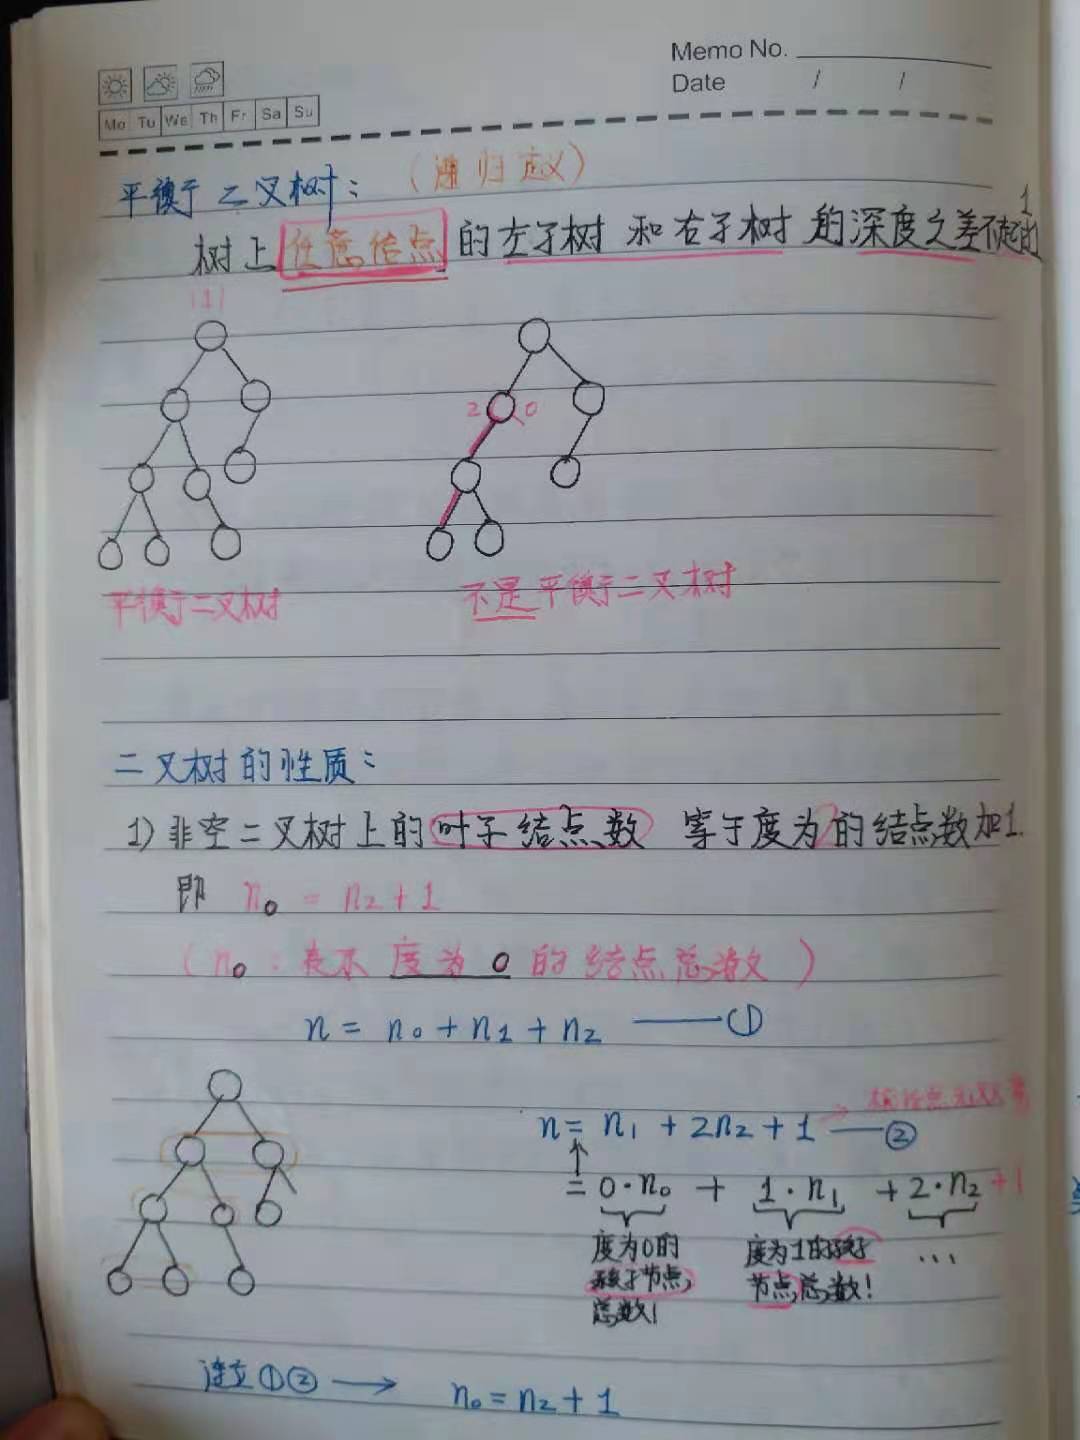 Memo No.
Date / /
Mo Tu We Th Fr Sa Su
平衡二叉树：（递归定义）
树上任意结点的左子树和右子树的深度之差不超过1
|1|
2 0
平衡二叉树
不是平衡二叉树
二叉树的性质：
1) 非空二叉树上的叶子结点数 等于度为2的结点数加1.
即 n₀ = n₂+1
（n₀：表示度为0的结点总数）
n = n₀+n₁+n₂ ——①
n = n₁ + 2n₂ + 1 ——②
= 0·n₀ + 1·n₁ + 2·n₂ +1
度为0的 度为1的孩子 ...
孩子节点, 节点总数!
总数!
连立①② → n₀ = n₂ + 1